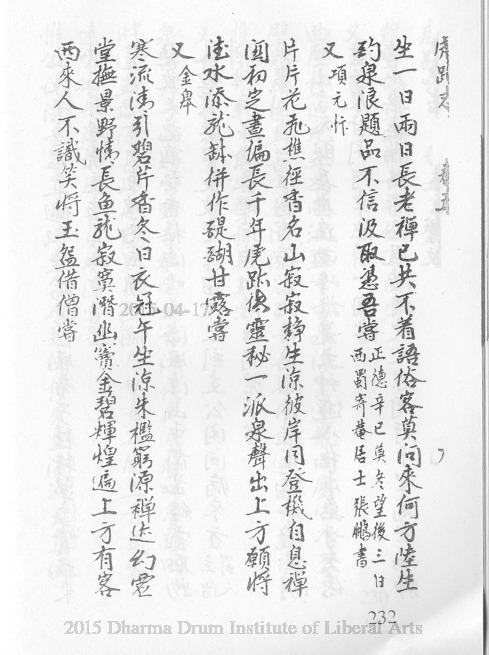 虎跑志
坐一日兩日長老禪已共不着語俗客莫问來何方陸生
約泉浪題品不信汲取憑吾嘗 正德辛巳莫冬望後三日
西蜀寄菴居士張鵬書
又 項元忭
片片花飛樵徑香名山寂寂静生凉彼岸同登機自息禅
関初定晝偏長千年虎跡傳靈秘一派泉聲出上方願將
法水添龍缽併作醍醐甘露嘗
又 金皋
寒流清引碧芹香冬日衣冠午生凉朱檻窮源禅迹幻雲
堂撫景野情長魚龍寂寞潛幽竇金碧輝煌遍上方有客
西來人不識笑将玉盌借僧嘗
232
2015-04-17
2015 Dharma Drum Institute of Liberal Arts